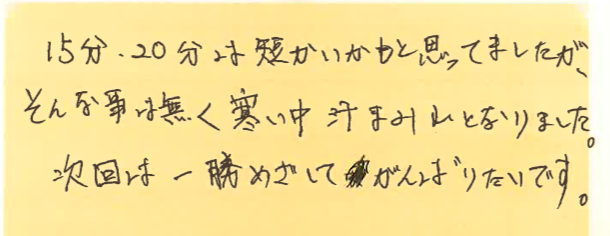 15分、20分は短かいかもと思ってましたが、
そんな事は無く寒い中汁まみれとなりました。
次回は一勝めざしてがんばりたいです。